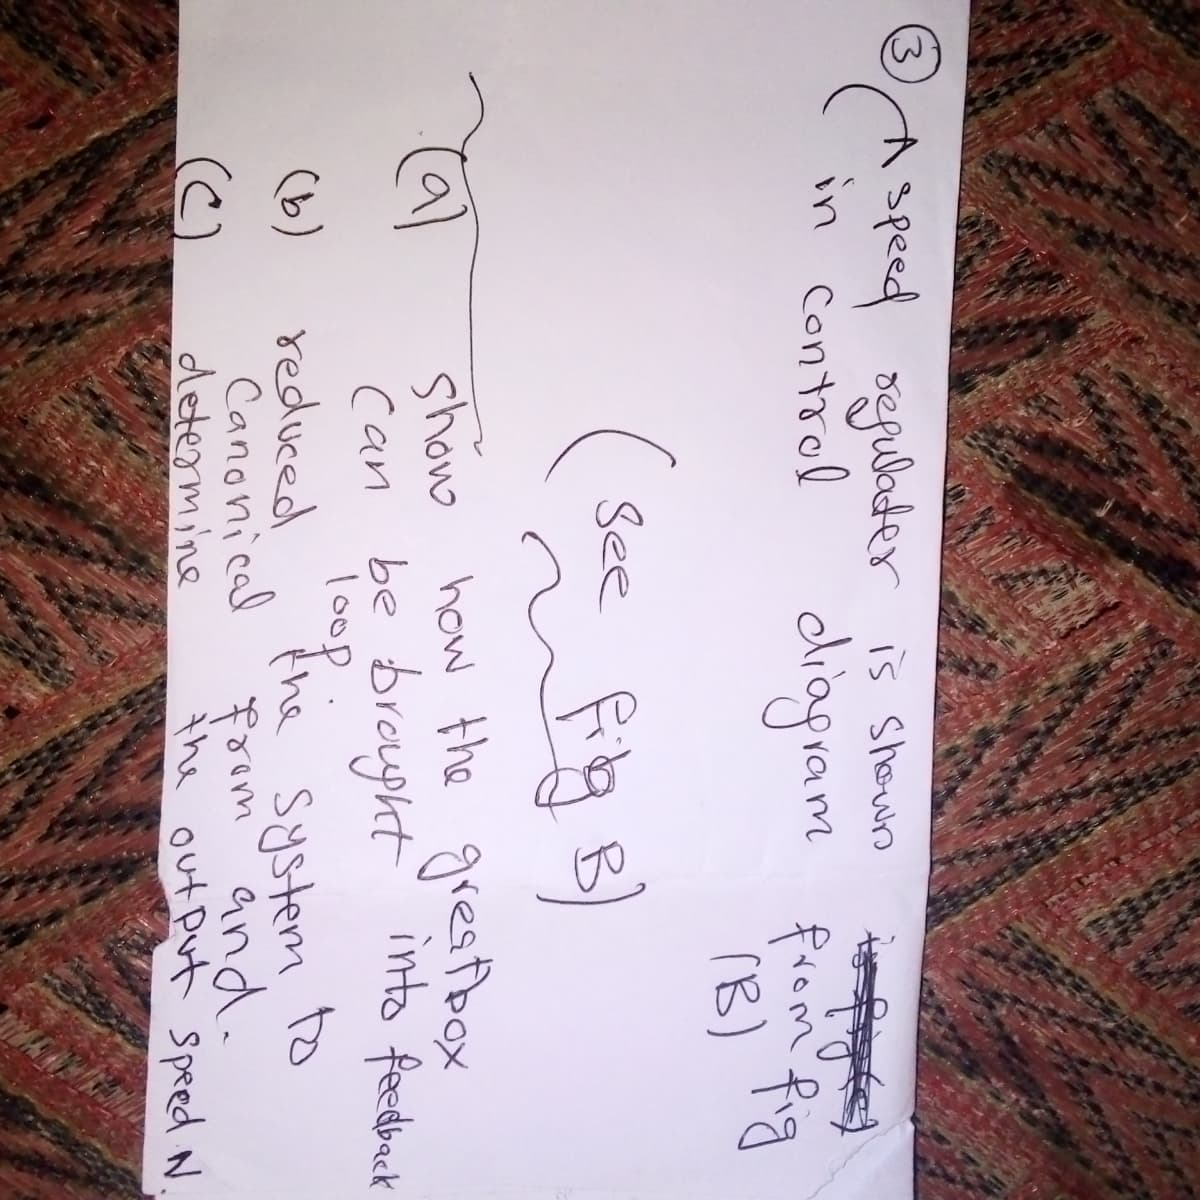 ③ (A speed regulater is shown
in control diagram from fig
(B)
(See fig B)
(a) Show how the greatbox
can be brought into feedback
loop.
(b) reduced the system to
Canonical from and.
(c) determine the output speed N.